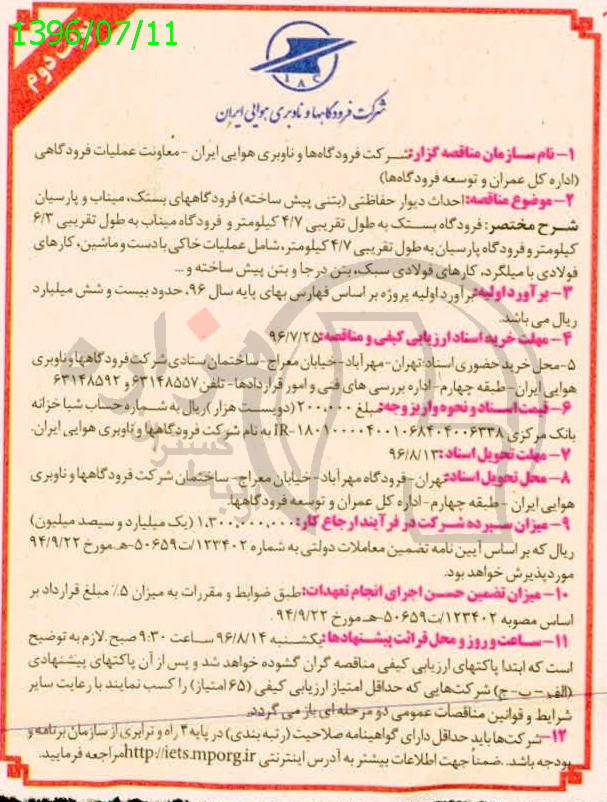 1396/07/11
نوبت دوم
IAC
شرکت فرودگاهها و ناوبری هوایی ایران
۱- نام سازمان مناقصه گزار: شرکت فرودگاه‌ها و ناوبری هوایی ایران - معاونت عملیات فرودگاهی
(اداره کل عمران و توسعه فرودگاه‌ها)
۲- موضوع مناقصه: احداث دیوار حفاظتی (بتنی پیش ساخته) فرودگاههای بستک، میناب و پارسیان
شرح مختصر: فرودگاه بستک به طول تقریبی ۴/۷ کیلومتر و فرودگاه میناب به طول تقریبی ۶/۳
کیلومتر و فرودگاه پارسیان به طول تقریبی ۴/۷ کیلومتر، شامل عملیات خاکی با دست و ماشین، کارهای
فولادی با میلگرد، کارهای فولادی سبک، بتن درجا و بتن پیش ساخته و ...
۳- برآورد اولیه: برآورد اولیه پروژه بر اساس فهارس بهای پایه سال ۹۶، حدود بیست و شش میلیارد
ریال می باشد.
۴- مهلت خرید اسناد ارزیابی کیفی و مناقصه: ۹۶/۷/۲۵
۵- محل خرید حضوری اسناد: تهران - مهرآباد - خیابان معراج - ساختمان ستادی شرکت فرودگاهها و ناوبری
هوایی ایران - طبقه چهارم - اداره بررسی های فنی و امور قراردادها - تلفن ۶۳۱۴۸۵۵۷ و ۶۳۱۴۸۵۹۲
۶- قیمت اسناد و نحوه واریز وجه: مبلغ ۲۰۰,۰۰۰ (دویست هزار) ریال به شماره حساب شبا خزانه
بانک مرکزی IR-۱۸۰۱۰۰۰۰۴۰۰۱۰۶۸۴۰۴۰۰۶۳۳۸ به نام شرکت فرودگاهها و ناوبری هوایی ایران.
۷- مهلت تحویل اسناد: ۹۶/۸/۱۳
۸- محل تحویل اسناد: تهران - فرودگاه مهرآباد - خیابان معراج - ساختمان شرکت فرودگاهها و ناوبری
هوایی ایران - طبقه چهارم - اداره کل عمران و توسعه فرودگاهها.
۹- میزان سپرده شرکت در فرآیند ارجاع کار: ۱,۳۰۰,۰۰۰,۰۰۰ (یک میلیارد و سیصد میلیون)
ریال که بر اساس آیین نامه تضمین معاملات دولتی به شماره ۱۲۳۴۰۲/ت۵۰۶۵۹-هـ مورخ ۹۴/۹/۲۲
مورد پذیرش خواهد بود.
۱۰- میزان تضمین حسن اجرای انجام تعهدات: طبق ضوابط و مقررات به میزان ۵٪ مبلغ قرارداد بر
اساس مصوبه ۱۲۳۴۰۲/ت۵۰۶۵۹-هـ مورخ ۹۴/۹/۲۲.
۱۱- ساعت و روز و محل قرائت پیشنهادها: یکشنبه ۹۶/۸/۱۴ ساعت ۹:۳۰ صبح. لازم به توضیح
است که ابتدا پاکتهای ارزیابی کیفی مناقصه گران گشوده خواهد شد و پس از آن پاکتهای پیشنهادی
(الف - ب - ج) شرکت‌هایی که حداقل امتیاز ارزیابی کیفی (۶۵ امتیاز) را کسب نمایند با رعایت سایر
شرایط و قوانین مناقصات عمومی دو مرحله ای باز می گردد.
۱۲- شرکت‌ها باید حداقل دارای گواهینامه صلاحیت (رتبه بندی) در پایه ۴ راه و ترابری از سازمان برنامه و
بودجه باشد. ضمناً جهت اطلاعات بیشتر به آدرس اینترنتی http://iets.mporg.ir مراجعه فرمایید.